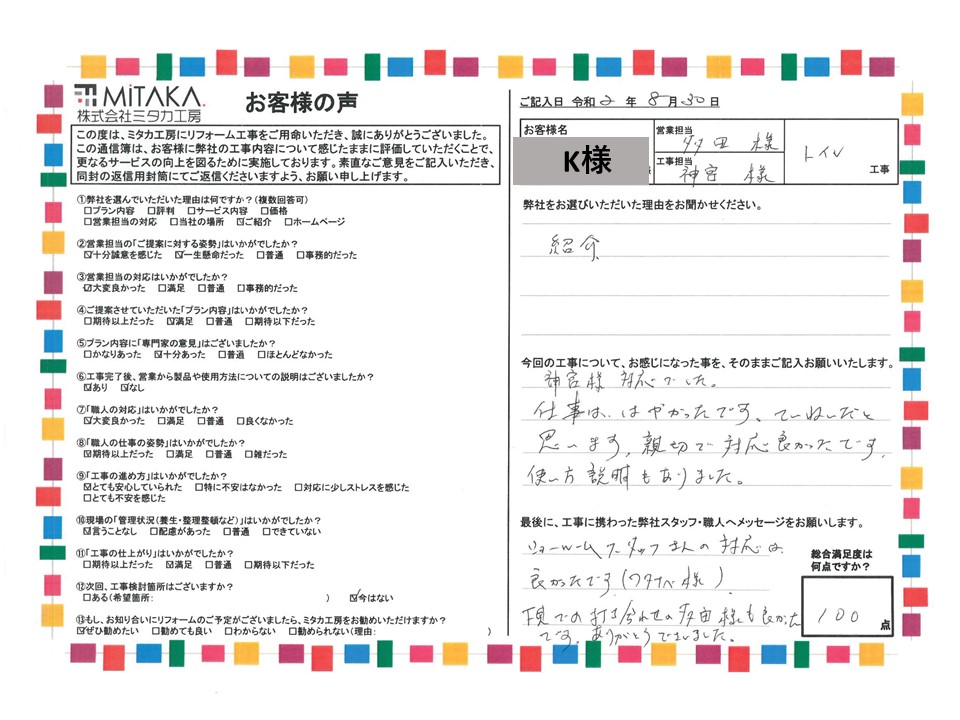 MiTAKA.
株式会社ミタカ工房
お客様の声
この度は、ミタカ工房にリフォーム工事をご用命いただき、誠にありがとうございました。
この通信簿は、お客様に弊社の工事内容について感じたままに評価していただくことで、
更なるサービスの向上を図るために実施しております。素直なご意見をご記入いただき、
同封の返信用封筒にてご返信くださいますよう、お願い申し上げます。
①弊社を選んでいただいた理由は何ですか？(複数回答可)
□プラン内容 □評判 □サービス内容 □価格
□営業担当の対応 □当社の場所 ☑ご紹介 □ホームページ
②営業担当の「ご提案に対する姿勢」はいかがでしたか？
☑十分誠意を感じた ☑一生懸命だった □普通 □事務的だった
③営業担当の対応はいかがでしたか？
☑大変良かった □満足 □普通 □事務的だった
④ご提案させていただいた「プラン内容」はいかがでしたか？
□期待以上だった ☑満足 □普通 □期待以下だった
⑤プラン内容に「専門家の意見」はございましたか？
□かなりあった ☑十分あった □普通 □ほとんどなかった
⑥工事完了後、営業から製品や使用方法についての説明はございましたか？
☑あり ☑なし
⑦「職人の対応」はいかがでしたか？
☑大変良かった □満足 □普通 □良くなかった
⑧「職人の仕事の姿勢」はいかがでしたか？
☑期待以上だった □満足 □普通 □雑だった
⑨「工事の進め方」はいかがでしたか？
☑とても安心していられた □特に不安はなかった □対応に少しストレスを感じた
□とても不安を感じた
⑩現場の「管理状況(養生・整理整頓など)」はいかがでしたか？
☑言うことなし □配慮があった □普通 □できていない
⑪「工事の仕上がり」はいかがでしたか？
□期待以上だった ☑満足 □普通 □期待以下だった
⑫次回、工事検討箇所はございますか？
□ある(希望箇所: ) ☑今はない
⑬もし、お知り合いにリフォームのご予定がございましたら、ミタカ工房をお勧めいただけますか？
☑ぜひ勧めたい □勧めても良い □わからない □勧められない(理由: )
ご記入日 令和 2 年 8 月 30 日
お客様名
K様
営業担当
多田 様
工事担当
神宮 様
トイレ
工事
弊社をお選びいただいた理由をお聞かせください。
紹介
今回の工事について、お感じになった事を、そのままご記入お願いいたします。
神宮様 対応でした。
仕事は、はやかったです、ていねいだと
思います、親切で対応良かったです、
使い方説明もありました。
最後に、工事に携わった弊社スタッフ・職人へメッセージをお願いします。
ショールームスタッフさんの対応は
良かったです(ワタナベ様)
下見での打ち合わせの多田様も良かった
です。ありがとうございました。
総合満足度は
何点ですか？
100
点